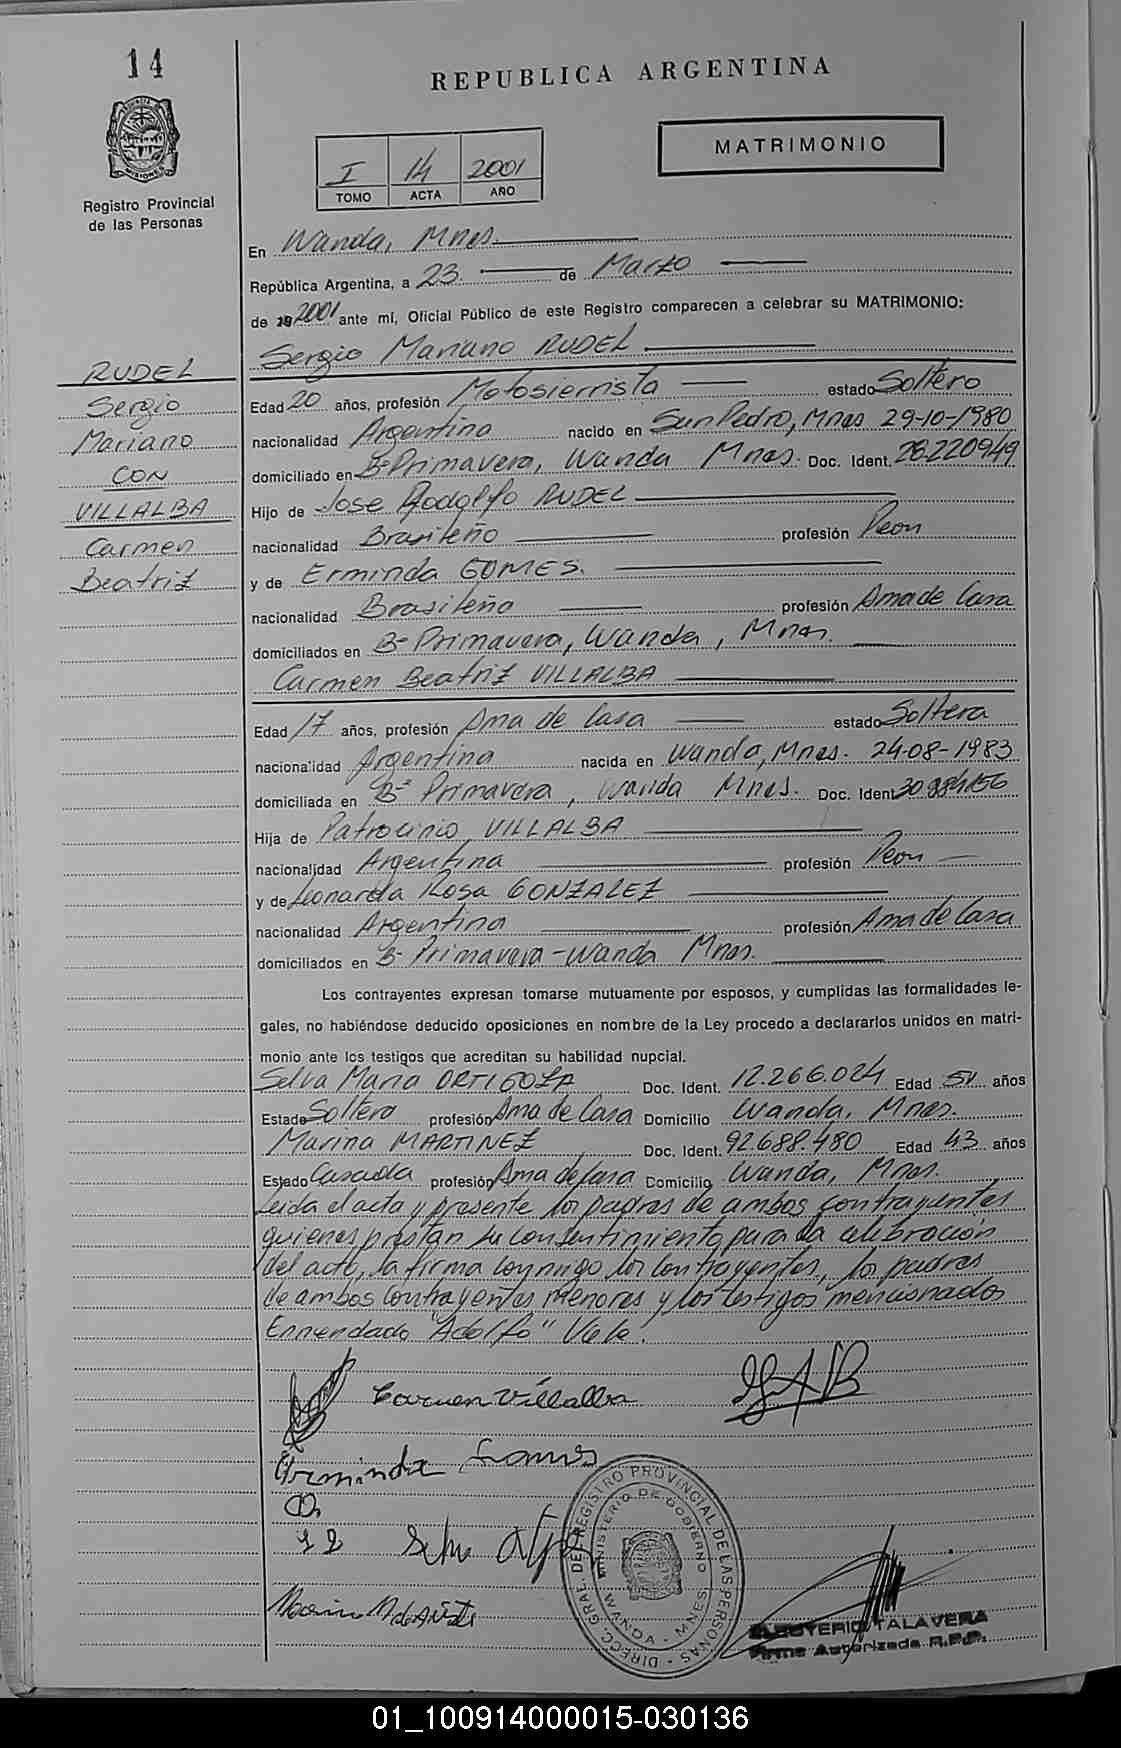 14
REPUBLICA ARGENTINA
MATRIMONIO
I 14 2001
TOMO ACTA AÑO
Registro Provincial
de las Personas
En Wanda, Mnes.
República Argentina, a 23 de Marzo
de 19 2001 ante mí, Oficial Público de este Registro comparecen a celebrar su MATRIMONIO:
Sergio Mariano RUDEL
RUDEL
Sergio
Mariano
CON
VILLALBA
Carmen
Beatriz
Edad 20 años, profesión Motosierrista estado Soltero
nacionalidad Argentina nacido en San Pedro, Mnes 29-10-1980
domiciliado en Bº Primavera, Wanda Mnes. Doc. Ident. 28.220.949
Hijo de Jose Rodolfo RUDEL
nacionalidad Brasileño profesión Peon
y de Erminda GOMES.
nacionalidad Brasileña profesión Ama de Casa
domiciliados en Bº Primavera, Wanda, Mnes.
Carmen Beatriz VILLALBA
Edad 17 años, profesión Ama de Casa estado Soltera
nacionalidad Argentina nacida en Wanda, Mnes. 24-08-1983
domiciliada en Bº Primavera, Wanda Mnes. Doc. Ident
Hija de Patrocinio VILLALBA
nacionalidad Argentina profesión Peon
y de Leonarda Rosa GONZALEZ
nacionalidad Argentina profesión Ama de Casa
domiciliados en Bº Primavera - Wanda Mnes.
Los contrayentes expresan tomarse mutuamente por esposos, y cumplidas las formalidades le-
gales, no habiéndose deducido oposiciones en nombre de la Ley procedo a declararlos unidos en matri-
monio ante los testigos que acreditan su habilidad nupcial.
Selva Maria ORTIGOZA Doc. Ident. 12.266.024 Edad 51 años
Estado Soltera profesión Ama de Casa Domicilio Wanda, Mnes.
Marina MARTINEZ Doc. Ident. 92.688.480 Edad 43 años
Estado Casada profesión Ama de Casa Domicilio Wanda, Mnes.
Leida el acta y presente los padres de ambos contrayentes
quienes prestan su consentimiento para la celebración
del acto, la firma conmigo los contrayentes, los padres
de ambos contrayentes menores y los testigos mencionados
Enmendado "Adolfo" Vale.
Carmen Villalba
Erminda Gomes
DIRECC. GRAL. DEL REGISTRO PROVINCIAL DE LAS PERSONAS
MINISTERIO DE GOBIERNO
WANDA - MNES
ELEUTERIO TALAVERA
Firma Autorizada R.P.P.
01_100914000015-030136